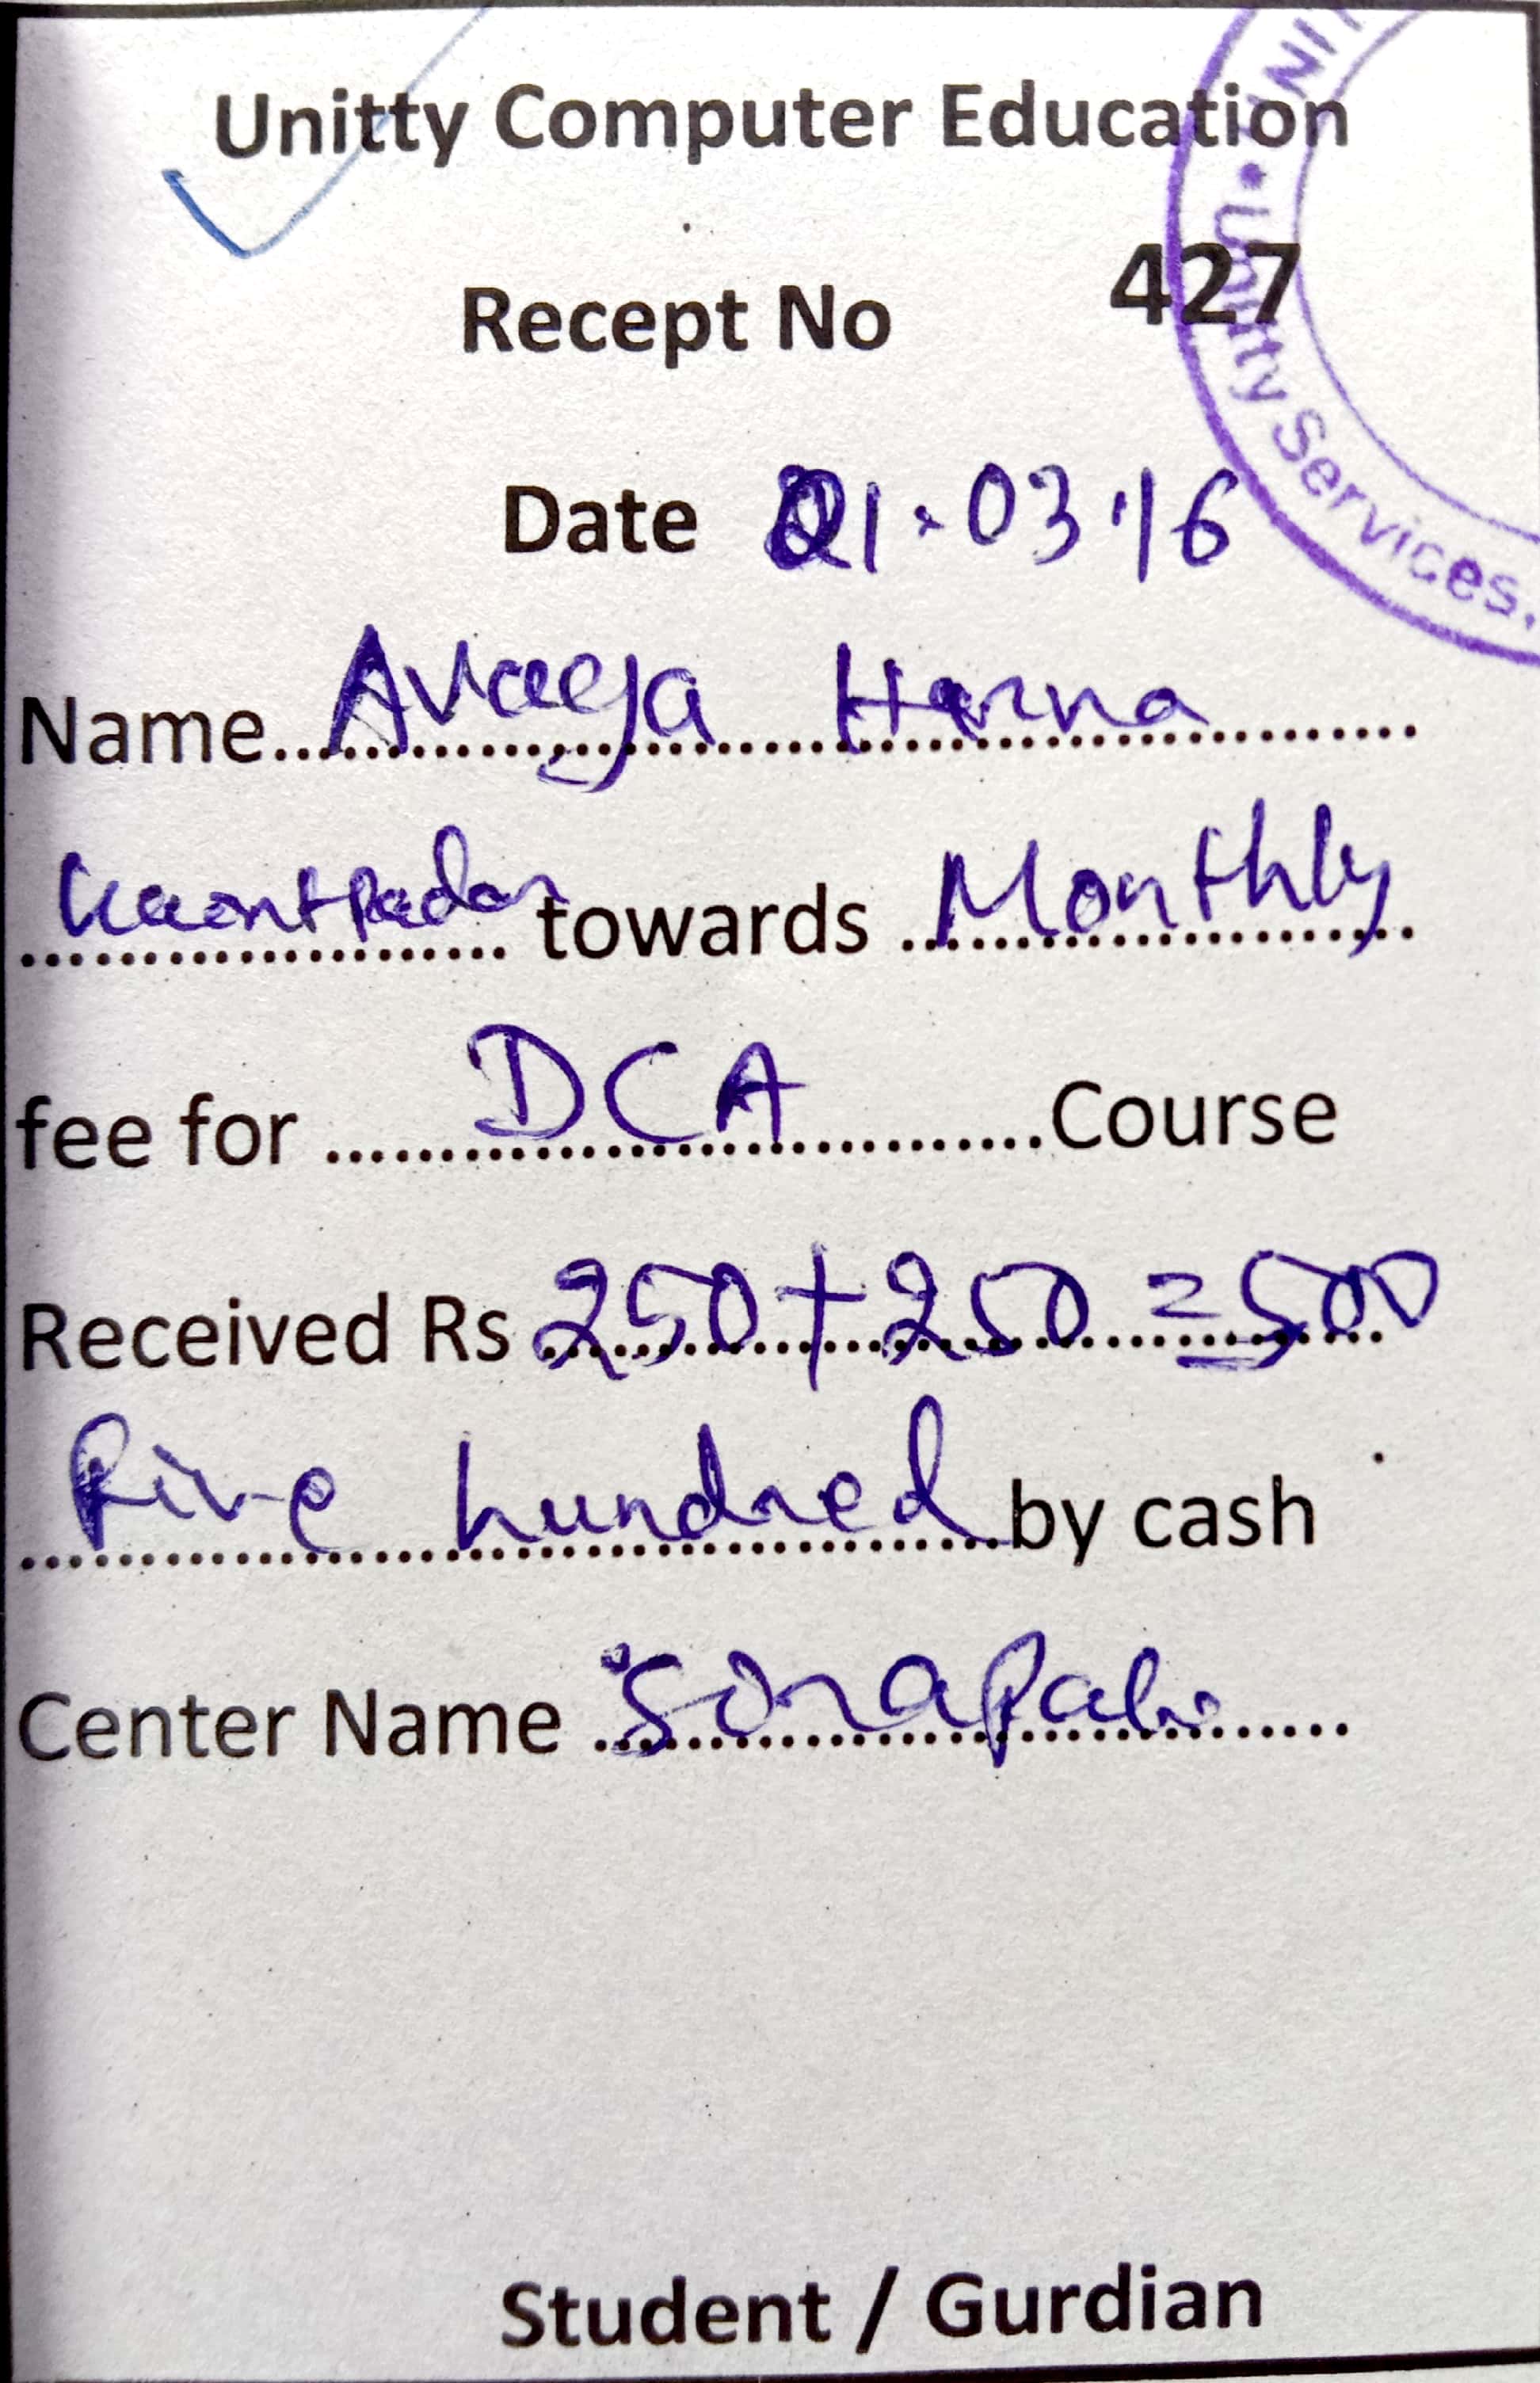 Unitty Computer Education
Recept No 427
Unity Services.
Date 21.03.16
Name.... Harna
towards Monthly
fee for DCA Course
Received Rs 250+250=500
Five hundred by cash
Center Name
Student / Gurdian